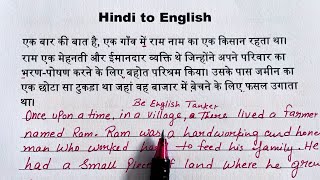 Hindi to English
एक बार की बात है, एक गाँव में राम नाम का एक किसान रहता था।
राम एक मेहनती और ईमानदार व्यक्ति थे जिन्होंने अपने परिवार का
भरण-पोषण करने के लिए बहोत परिश्रम किया। उसके पास जमीन का
एक छोटा सा टुकड़ा था जहां वह बाजार में बेचने के लिए फसल उगाता
था।
Be English Tanker
Once upon a time, in a village, a There lived a farmer
named Ram. Ram was a hardworking and hone
man who worked hard to feed his family. He
had a small piece of land where he grew